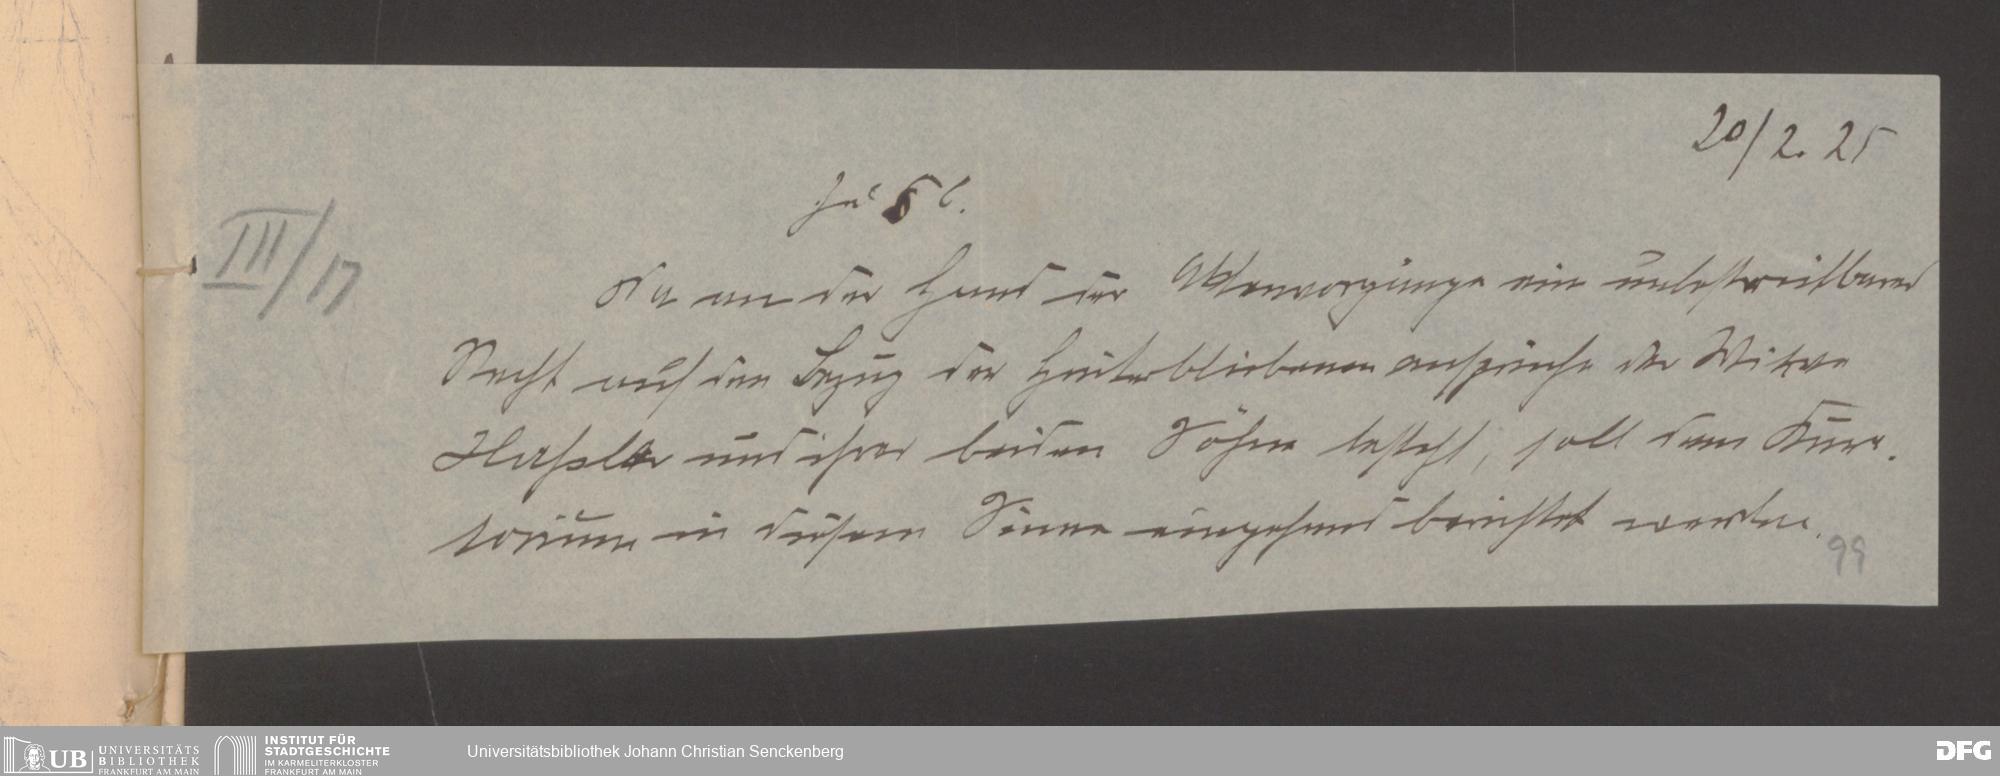 20/2. 25
Zu 8 c.
III/17
Da an der Hand der Aktenvorgänge ein unbestreitbares
Recht auf den Bezug der Hinterbliebenenansprüche der Witwe
und ihrer beiden Söhne besteht, soll dem Kura-
torium in diesem Sinne eingehend berichtet werden.
99
UB UNIVERSITÄTS
BIBLIOTHEK
FRANKFURT AM MAIN
INSTITUT FÜR
STADTGESCHICHTE
IM KARMELITERKLOSTER
FRANKFURT AM MAIN
Universitätsbibliothek Johann Christian Senckenberg
DFG